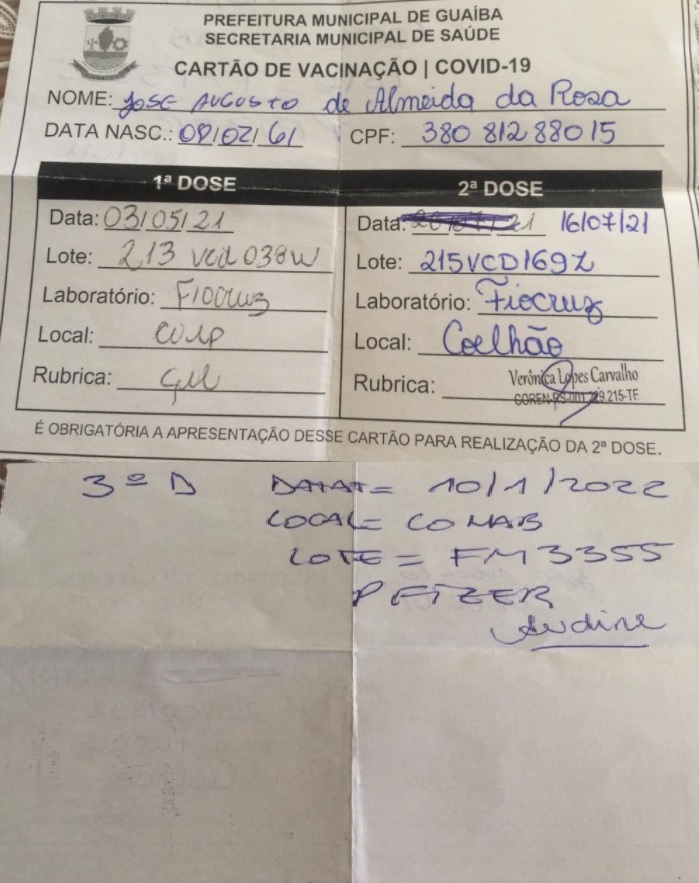 PREFEITURA MUNICIPAL DE GUAÍBA
SECRETARIA MUNICIPAL DE SAÚDE
CARTÃO DE VACINAÇÃO | COVID-19
NOME: JOSE AUGUSTO de Almeida da Rosa
DATA NASC.: 09/02/61 CPF: 380 812 880 15
1ª DOSE
Data: 03/05/21
Lote: 213 vcd 038w
Laboratório: Fiocruz
Local:
Rubrica:
2ª DOSE
Data: 16/07/21
Lote: 215VCD169Z
Laboratório: Fiocruz
Local: Coelhão
Rubrica: Verônica Lopes Carvalho
COREN-RS 215-TE
É OBRIGATÓRIA A APRESENTAÇÃO DESSE CARTÃO PARA REALIZAÇÃO DA 2ª DOSE.
3º D DATA= 10/1/2022
LOCAL= COHAB
LOTE= FM3355
PFIZER